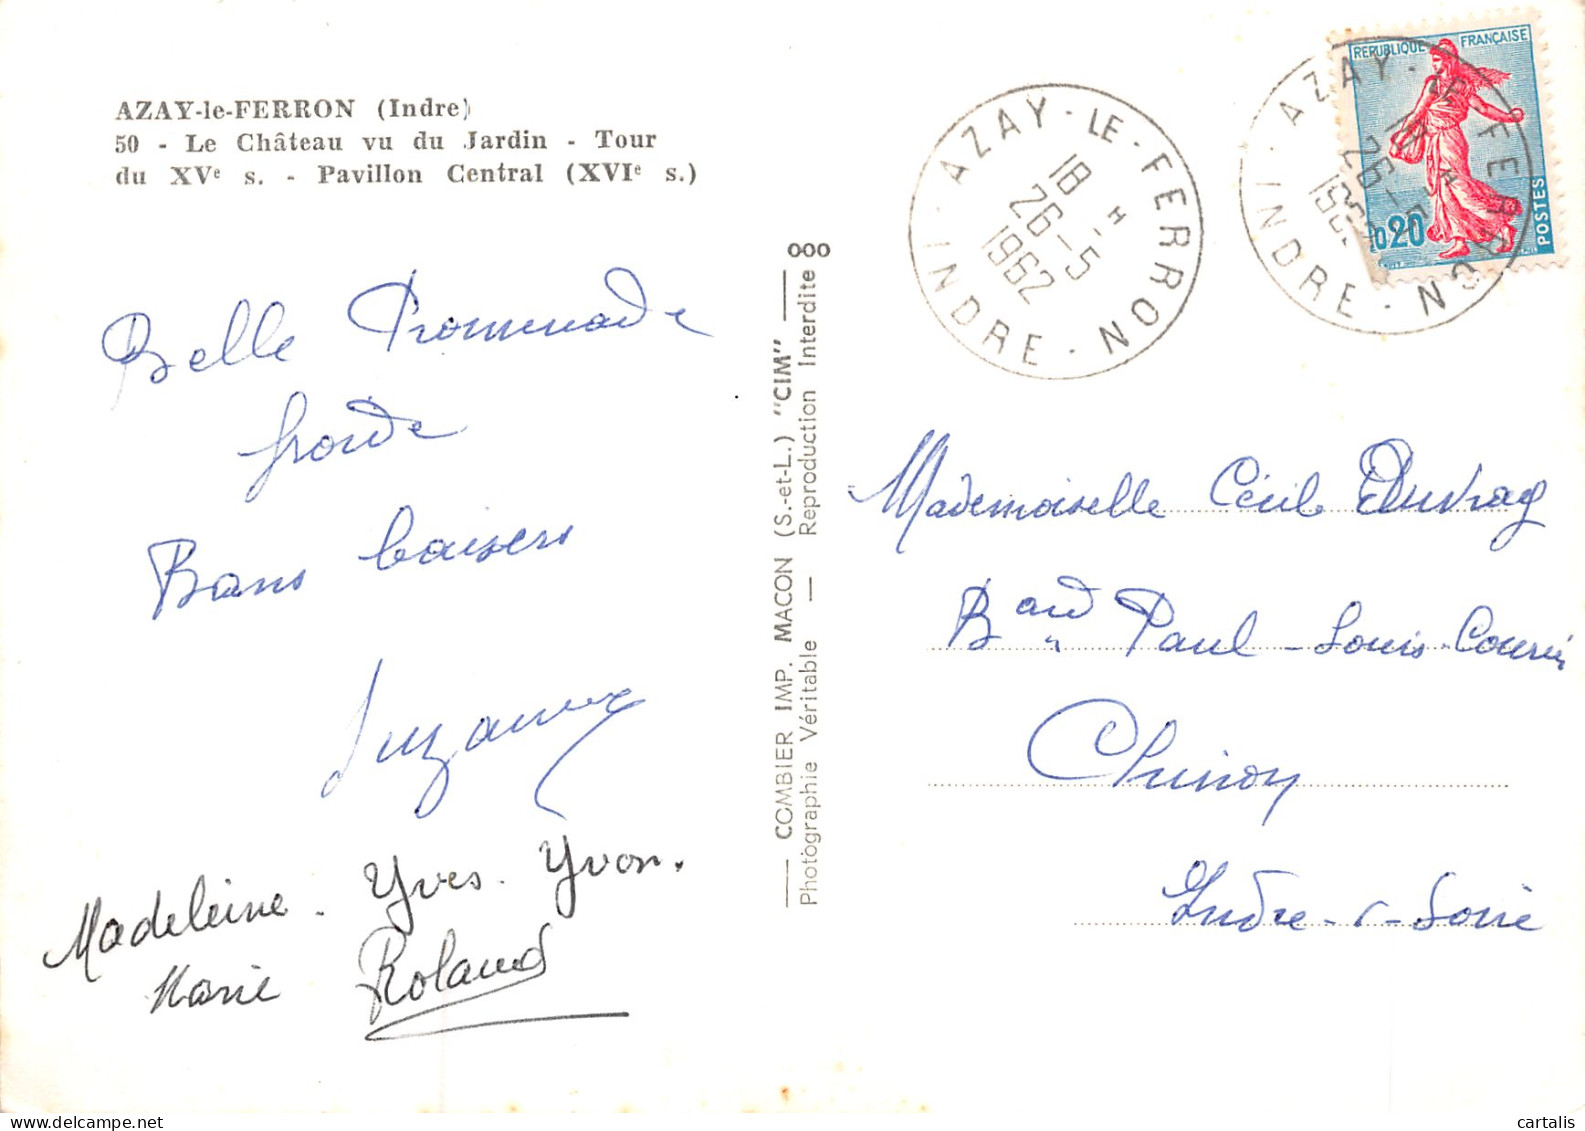 AZAY-le-FERRON (Indre)
50 - Le Château vu du Jardin - Tour
du XVe s. - Pavillon Central (XVIe s.)
Belle Promenade
froide
Bons baisers
Suzanne
Madeleine - Yves - Yvon.
Marie Roland
COMBIER IMP. MACON (S.-et-L.) "CIM"
Photographie Véritable — Reproduction Interdite
AZAY-LE-FERRON
18 H
26-5
1962
INDRE
REPUBLIQUE FRANÇAISE
0,20
POSTES
AZAY-LE-FERRON
18 H
26-5
INDRE
Mademoiselle Cécile
Bard Paul-Louis-Courier
Chinon
Indre-&-Loire
cartalis